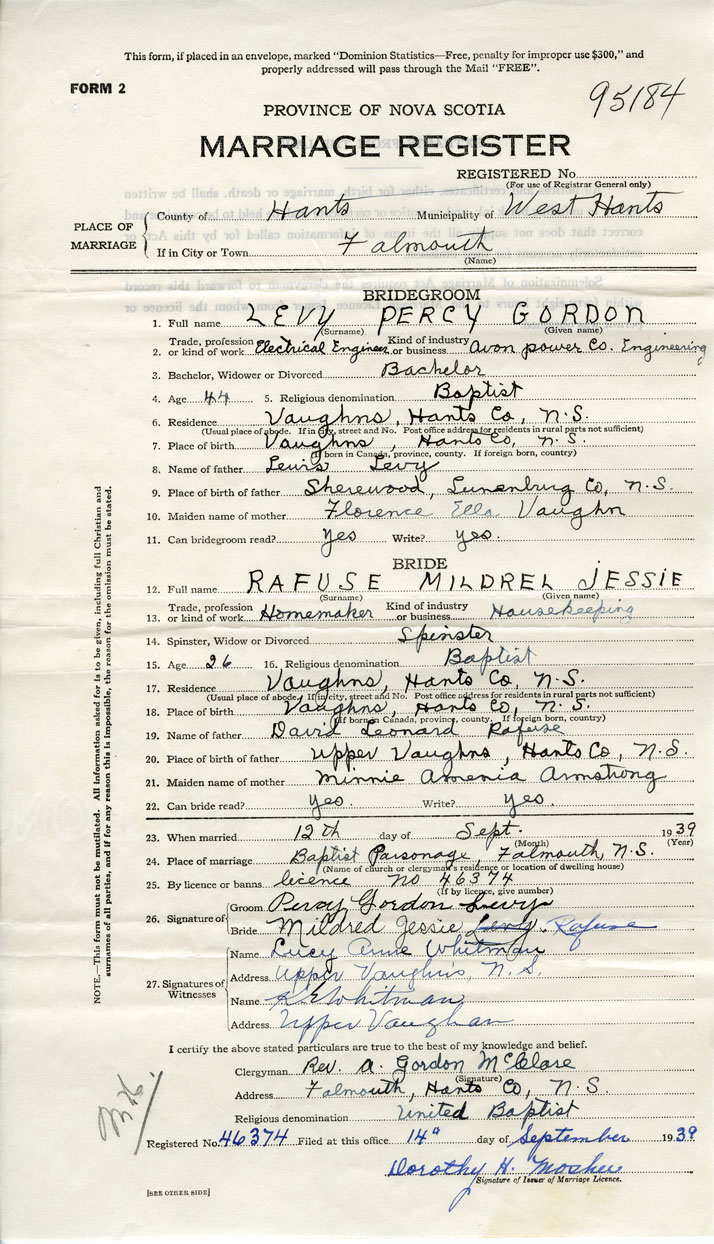 This form, if placed in an envelope, marked "Dominion Statistics—Free, penalty for improper use $300," and
properly addressed will pass through the Mail "FREE".
FORM 2
95184
PROVINCE OF NOVA SCOTIA
MARRIAGE REGISTER
REGISTERED No.
(For use of Registrar General only)
PLACE OF MARRIAGE
County of Hants Municipality of West Hants
If in City or Town Falmouth
(Name)
BRIDEGROOM
1. Full name LEVY PERCY GORDON
(Surname) (Given name)
2. Trade, profession or kind of work Electrical Engineer Kind of industry or business Avon power Co. Engineering
3. Bachelor, Widower or Divorced Bachelor
4. Age 44 5. Religious denomination Baptist
6. Residence Vaughns, Hants Co, N.S.
(Usual place of abode. If in City, street and No. Post office address for residents in rural parts not sufficient)
7. Place of birth Vaughns, Hants Co, N.S.
(If born in Canada, province, county. If foreign born, country)
8. Name of father Lewis Levy
9. Place of birth of father Sherewood, Lunenburg Co, N.S.
10. Maiden name of mother Florence Ella Vaughn
11. Can bridegroom read? yes Write? yes.
BRIDE
12. Full name RAFUSE MILDREL JESSIE
(Surname) (Given name)
13. Trade, profession or kind of work Homemaker Kind of industry or business Housekeeping
14. Spinster, Widow or Divorced Spinster
15. Age 26 16. Religious denomination Baptist
17. Residence Vaughns, Hants Co, N.S.
(Usual place of abode. If in city, street and No. Post office address for residents in rural parts not sufficient)
18. Place of birth Vaughns, Hants Co, N.S.
(If born in Canada, province, county. If foreign born, country)
19. Name of father David Leonard Rafuse
20. Place of birth of father Upper Vaughns, Hants Co, N.S.
21. Maiden name of mother Minnie Amenia Armstrong
22. Can bride read? yes. Write? yes.
23. When married 12th day of Sept. 1939
(Month) (Year)
24. Place of marriage Baptist Parsonage, Falmouth, N.S.
(Name of church or clergyman's residence or location of dwelling house)
25. By licence or banns licence no 46374
(If by licence, give number)
26. Signature of
Groom Percy Gordon Levy
Bride Mildred Jessie Levy Rafuse
27. Signatures of Witnesses
Name Lucy Anne Whitman
Address Upper Vaughn's, N.S.
Name Whitman
Address Upper Vaughan
I certify the above stated particulars are true to the best of my knowledge and belief.
Clergyman Rev. A. Gordon McClare
(Signature)
Address Falmouth, Hants Co, N.S.
Religious denomination United Baptist
Registered No. 46374 Filed at this office 14 day of September 1939
Dorothy H. Mosher
Signature of Issuer of Marriage Licence.
[SEE OTHER SIDE]
NOTE.—This form must not be mutilated. All information asked for is to be given, including full Christian and
surnames of all parties, and if for any reason this is impossible, the reason for the omission must be stated.